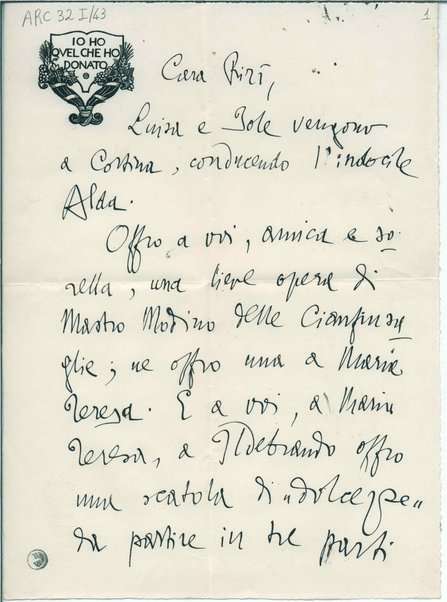 ARC 32 I/43
1
IO HO
QVEL CHE HO
DONATO
Cara Rirì,
Luisa e Jole vengono
a Cortina, conducendo l'indocile
Alda.
Offro a voi, amica e so-
rella, una lieve opera di
Mastro Modino delle Cianfrusa
glie; ne offro una a Maria
Teresa. E a voi, a Maria
Teresa, a Ildebrando offro
una scatola di "dolcezze"
da partire in tre parti